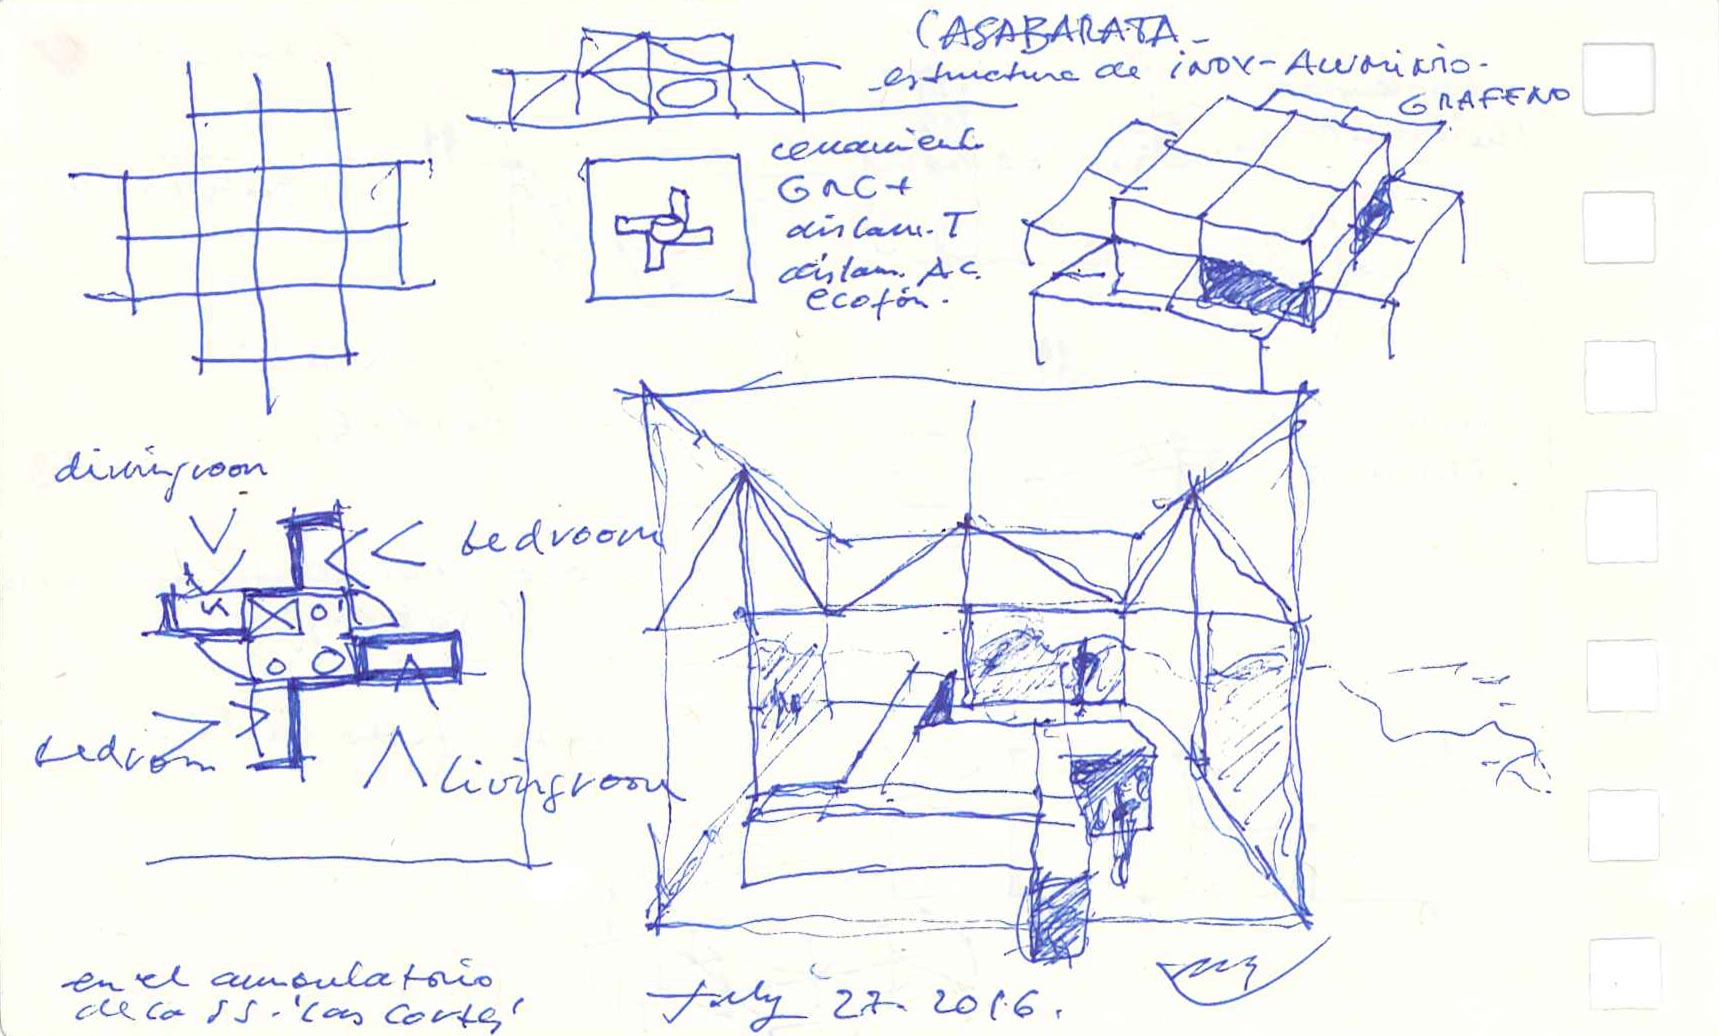 CASABARATA-
estructura de inox-Aluminio-
GRAFENO
cerramiento
GRC+
aislam. T
aislam. A.C.
ecofón.
diningroom
bedroom
K
bedroom
livingroom
en el ambulatorio
de la SS. 'Las Cortes'
July 27. 2016.